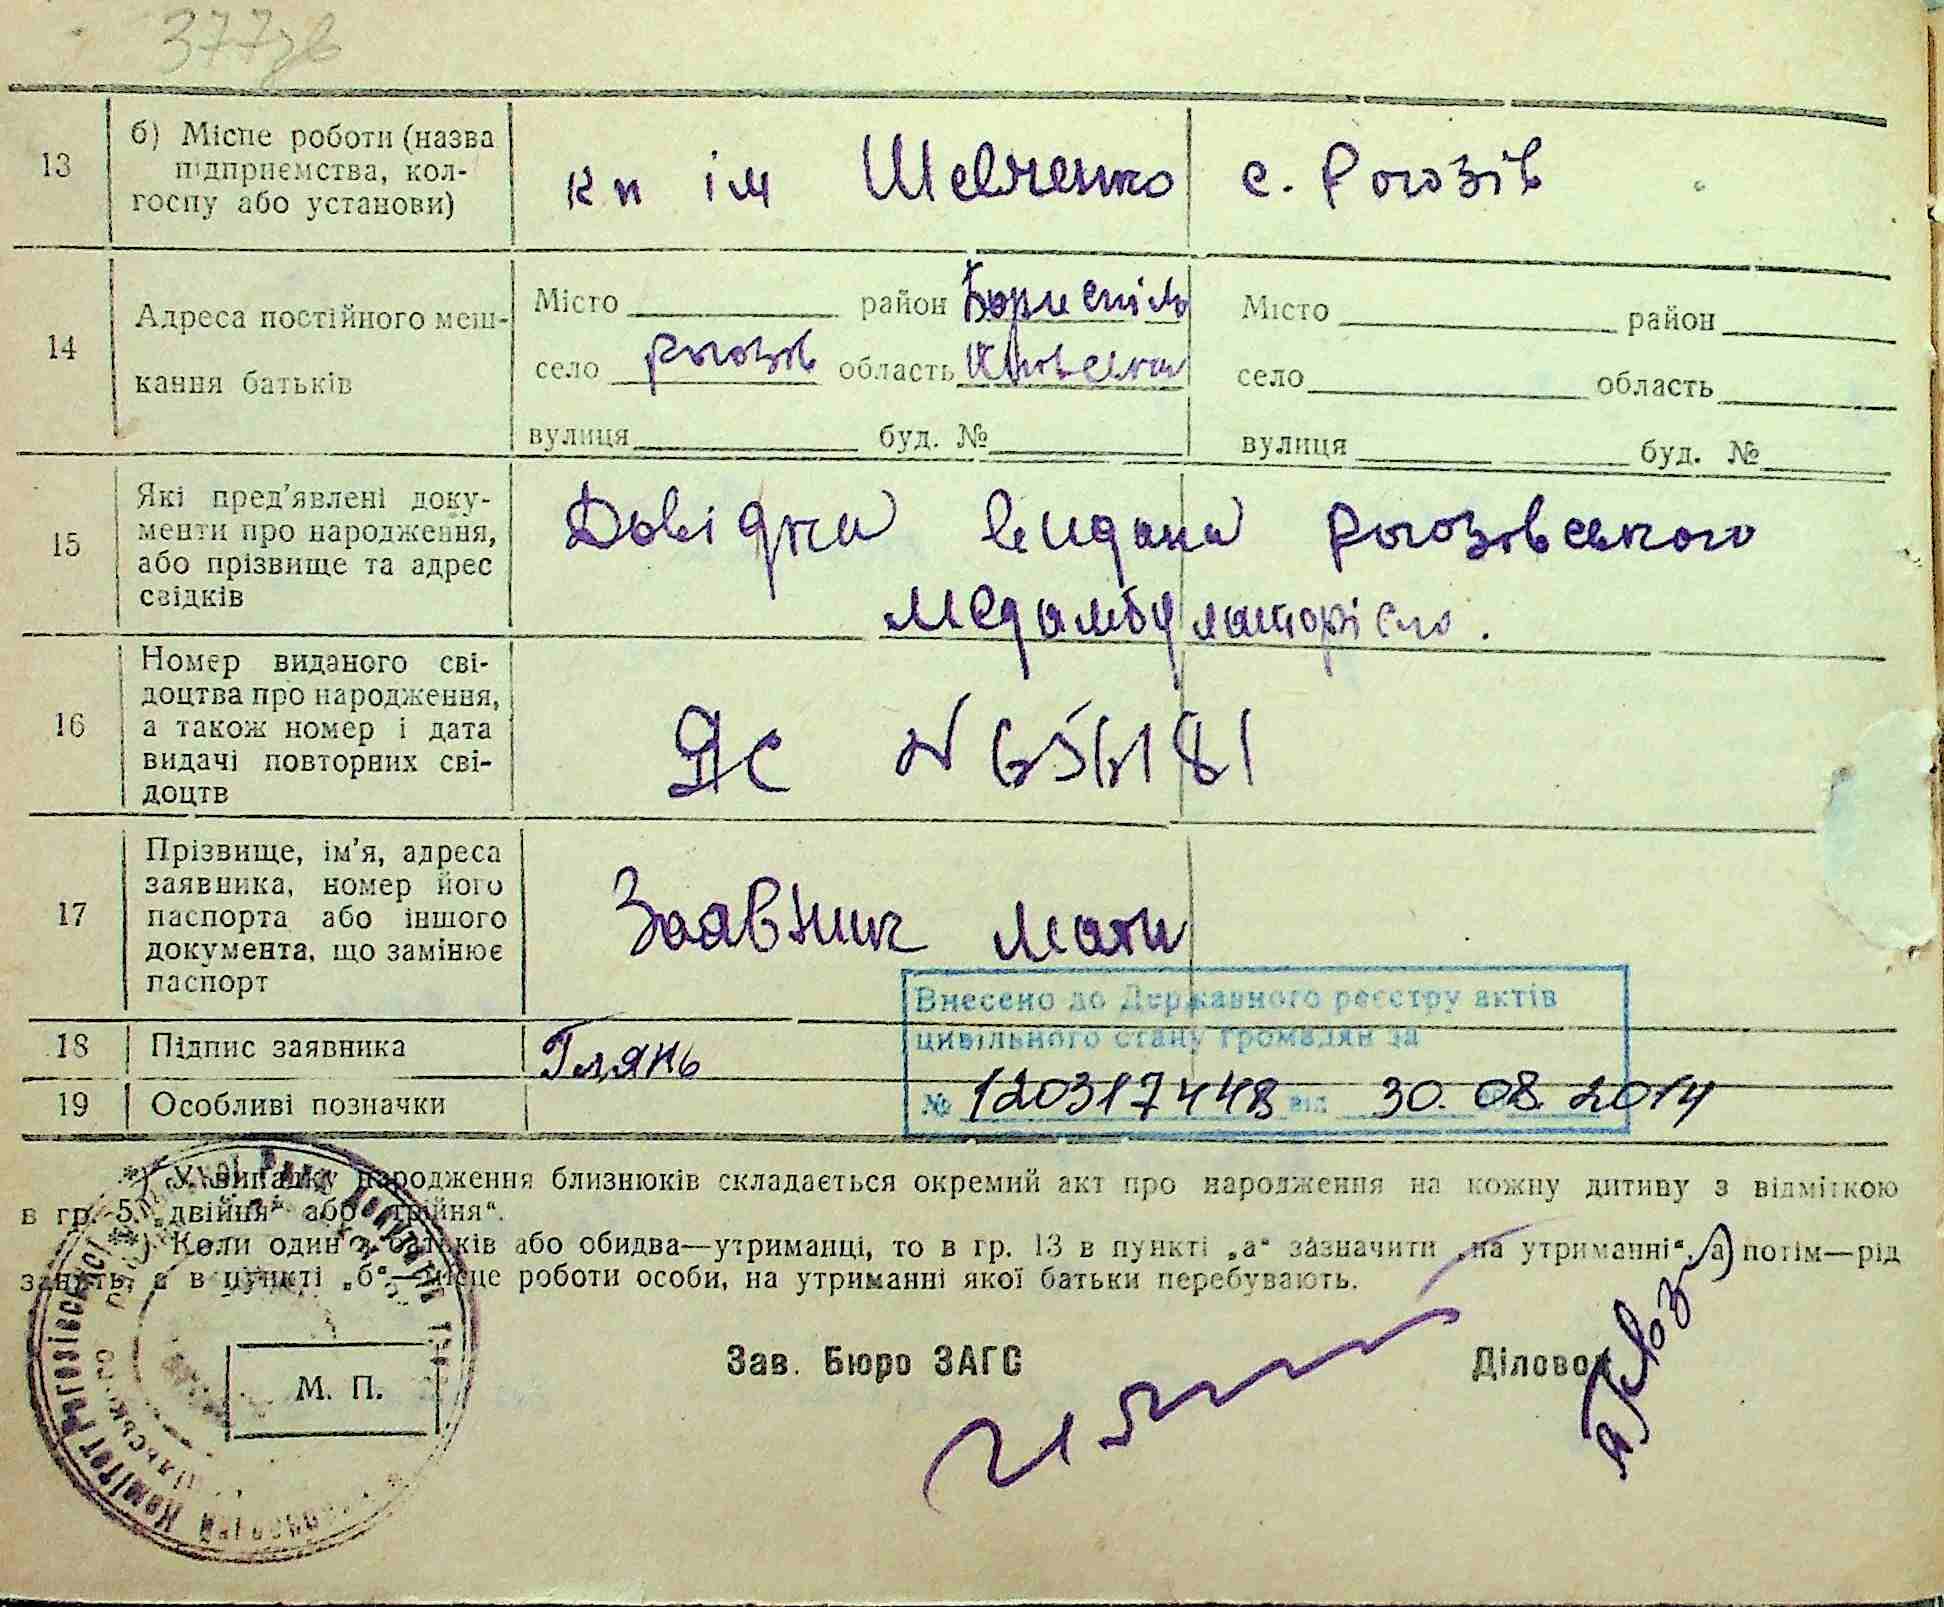 377зв
13 б) Місце роботи (назва підприємства, колгоспу або установи) кп ім Шевченко с. Рогозів
14 Адреса постійного мешкання батьків
Місто район Бориспіль Місто район
село Рогозів область Київська село область
вулиця буд. № вулиця буд. №
15 Які пред'явлені документи про народження, або прізвище та адрес свідків
Довідка видана Рогозовського
медамбулаторією.
16 Номер виданого свідоцтва про народження, а також номер і дата видачі повторних свідоцтв
ЯС N 656181
17 Прізвище, ім'я, адреса заявника, номер його паспорта або іншого документа, що замінює паспорт
Заявник мати
Внесено до Державного реєстру актів
цивільного стану громадян за
18 Підпис заявника Глянь
№ 120317448 від 30.08.2014
19 Особливі позначки
*) У випадку народження близнюків складається окремий акт про народження на кожну дитину з відміткою
в гр. 5 „двійня“ або „трійня“.
**) Коли один з батьків або обидва—утриманці, то в гр. 13 в пункті „а“ зазначити „на утриманні“, а потім—рід
занять, а в пункті „б“—місце роботи особи, на утриманні якої батьки перебувають.
Зав. Бюро ЗАГС Діловод
М. П.